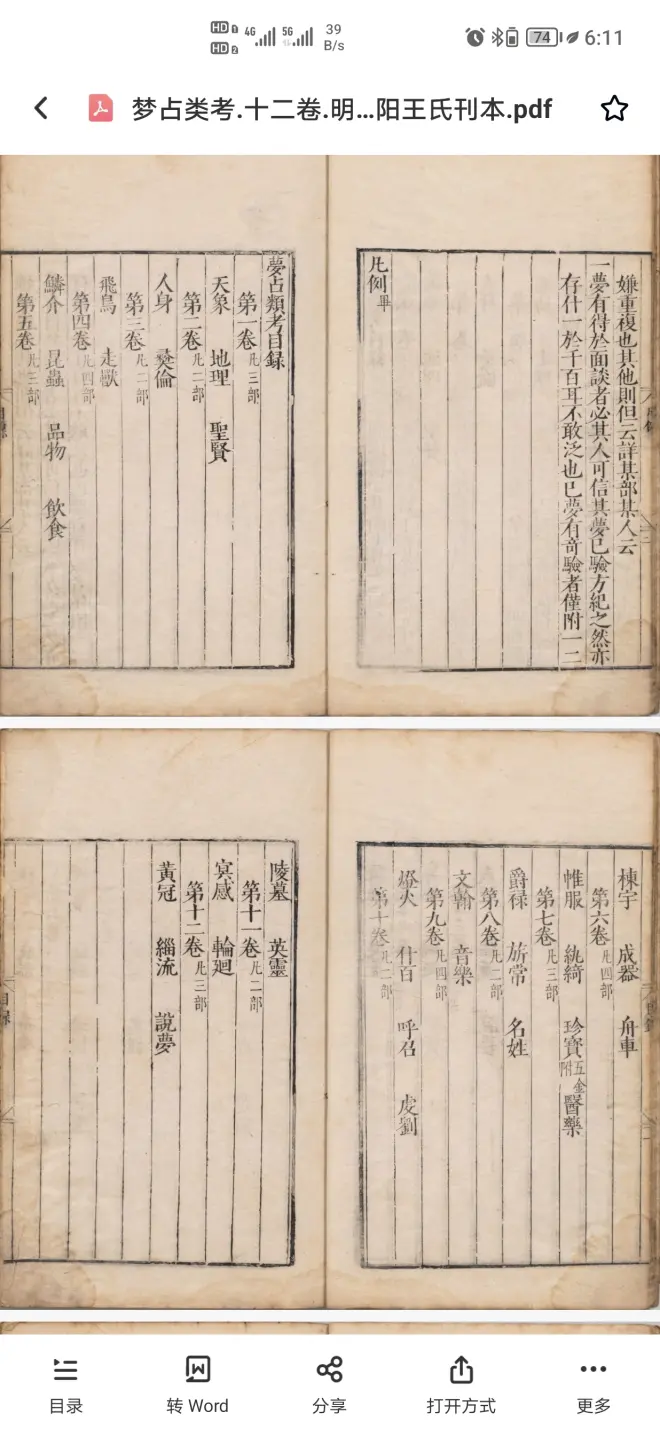 HD 1 4G 5G 39 B/s 74 6:11
HD 2
梦占类考.十二卷.明...阳王氏刊本.pdf
嫌重複也其他則但云詳某部某人云
一夢有得於面談者必其人可信其夢已驗方紀之然亦
存什一於千百耳不敢泛也已夢有奇驗者僅附一二
凡例畢
夢占類考目録
第一卷凡三部
天象 地理 聖賢
第二卷凡二部
人身 㸑倫
第三卷凡二部
飛鳥 走獸
第四卷凡四部
鱗介 昆蟲 品物 飲食
第五卷凡三部
棟宇 成器 舟車
第六卷凡四部
帷服 紈綺 珍寶五金附 醫藥
第七卷凡三部
爵祿 旂常 名姓
第八卷凡二部
文翰 音樂
第九卷凡四部
燈火 什百 呼召 虔劉
第十卷凡二部
陵墓 英靈
第十一卷凡二部
冥感 輪廻
第十二卷凡三部
黃冠 緇流 說夢
目录
转 Word
分享
打开方式
更多